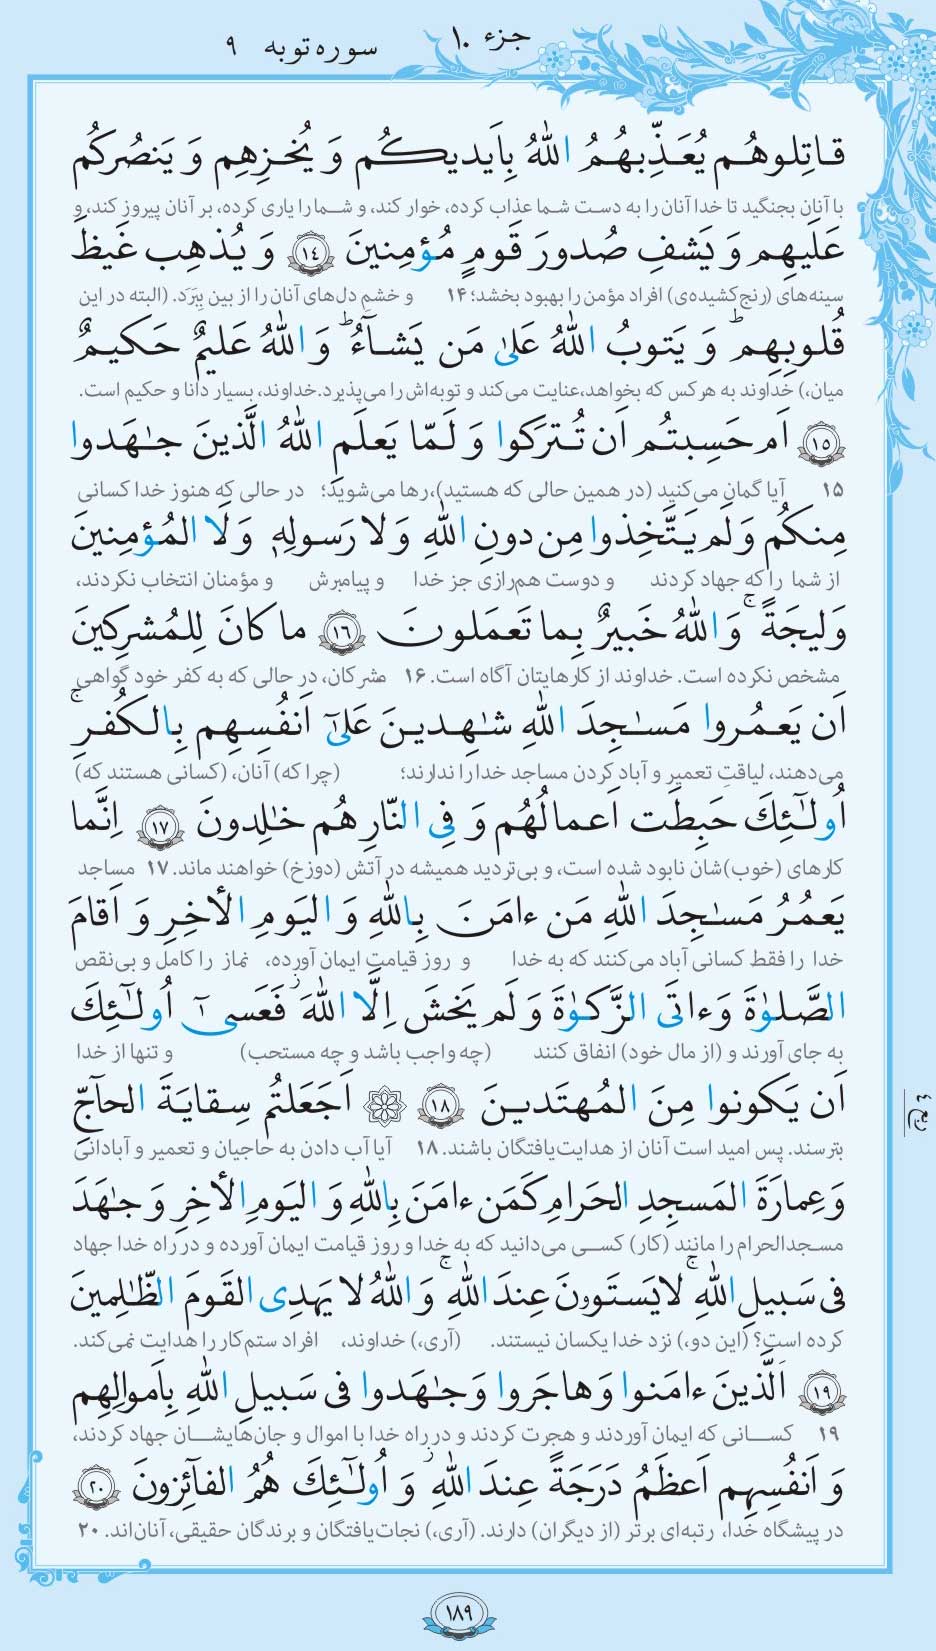 جزء ۱۰
سوره توبه ۹
قاتِلوهُم يُعَذِّبهُمُ اللّٰهُ بِاَيديكُم وَ يُخزِهِم وَ يَنصُركُم
با آنان بجنگید تا خدا آنان را به دست شما عذاب کرده، خوار کند، و شما را یاری کرده، بر آنان پیروز کند، و
عَلَيهِم وَ يَشفِ صُدورَ قَومٍ مُؤمِنينَ ﴿١٤﴾ وَ يُذهِب غَيظَ
سینه‌های (رنج‌کشیده‌ی) افراد مؤمن را بهبود بخشد؛ ۱۴ و خشمِ دل‌های آنان را از بین بِبَرَد. (البته در این
قُلوبِهِم ۗ وَ يَتوبُ اللّٰهُ عَلىٰ مَن يَشآءُ ۗ وَ اللّٰهُ عَليمٌ حَكيمٌ
میان،) خداوند به هر کس که بخواهد،عنایت می‌کند و توبه‌اش را می‌پذیرد.خداوند، بسیار دانا و حکیم است.
﴿١٥﴾ اَم حَسِبتُم اَن تُترَكوا وَ لَمّا يَعلَمِ اللّٰهُ الَّذينَ جٰهَدوا
۱۵ آیا گمان می‌کنید (در همین حالی که هستید)،رها می‌شوید؛ در حالی که هنوز خدا کسانی
مِنكُم وَ لَم يَتَّخِذوا مِن دونِ اللّٰهِ وَ لا رَسولِهٖ وَ لَا المُؤمِنينَ
از شما را که جهاد کردند و دوست هم‌رازی جز خدا و پیامبرش و مؤمنان انتخاب نکردند،
وَليجَةً ۚ وَ اللّٰهُ خَبيرٌ بِما تَعمَلونَ ﴿١٦﴾ ما كانَ لِلمُشرِكينَ
مشخص نکرده است. خداوند از کارهایتان آگاه است. ۱۶ مشرکان، در حالی که به کفر خود گواهی
اَن يَعمُروا مَسٰجِدَ اللّٰهِ شٰهِدينَ عَلىٰٓ اَنفُسِهِم بِالكُفرِ ۚ
می‌دهند، لیاقتِ تعمیر و آباد کردن مساجد خدا را ندارند؛ (چرا که) آنان، (کسانی هستند که)
اُولٰٓئِكَ حَبِطَت اَعمالُهُم وَ فِى النّارِ هُم خٰلِدونَ ﴿١٧﴾ اِنَّما
کارهای (خوب)شان نابود شده است، و بی‌تردید همیشه در آتش (دوزخ) خواهند ماند. ۱۷ مساجد
يَعمُرُ مَسٰجِدَ اللّٰهِ مَن ءامَنَ بِاللّٰهِ وَ اليَومِ الأخِرِ وَ اَقامَ
خدا را فقط کسانی آباد می‌کنند که به خدا و روز قیامت ایمان آورده، نماز را کامل و بی‌نقص
الصَّلوٰةَ وَ ءاتَى الزَّكوٰةَ وَ لَم يَخشَ اِلَّا اللّٰهَ ۖ فَعَسىٰٓ اُولٰٓئِكَ
به جای آورند و (از مال خود) انفاق کنند (چه واجب باشد و چه مستحب) و تنها از خدا
اَن يَكونوا مِنَ المُهتَدينَ ﴿١٨﴾ ۞ اَجَعَلتُم سِقايَةَ الحآجِّ
بترسند. پس امید است آنان از هدایت‌یافتگان باشند. ۱۸ آیا آب دادن به حاجیان و تعمیر و آبادانی
ربع ٤
وَ عِمارَةَ المَسجِدِ الحَرامِ كَمَن ءامَنَ بِاللّٰهِ وَ اليَومِ الأخِرِ وَ جٰهَدَ
مسجدالحرام را مانند (کار) کسی می‌دانید که به خدا و روز قیامت ایمان آورده و در راه خدا جهاد
فى سَبيلِ اللّٰهِ ۚ لا يَستَوونَ عِندَ اللّٰهِ ۗ وَ اللّٰهُ لا يَهدِى القَومَ الظّٰلِمينَ
کرده است؟ (این دو،) نزد خدا یکسان نیستند. (آری،) خداوند، افراد ستم‌کار را هدایت نمی‌کند.
﴿١٩﴾ اَلَّذينَ ءامَنوا وَ هاجَروا وَ جٰهَدوا فى سَبيلِ اللّٰهِ بِاَموالِهِم
۱۹ کسانی که ایمان آوردند و هجرت کردند و در راه خدا با اموال و جان‌هایشان جهاد کردند،
وَ اَنفُسِهِم اَعظَمُ دَرَجَةً عِندَ اللّٰهِ ۚ وَ اُولٰٓئِكَ هُمُ الفآئِزونَ ﴿٢٠﴾
در پیشگاه خدا، رتبه‌ای برتر (از دیگران) دارند. (آری،) نجات‌یافتگان و برندگان حقیقی، آنان‌اند. ۲۰
١٨٩